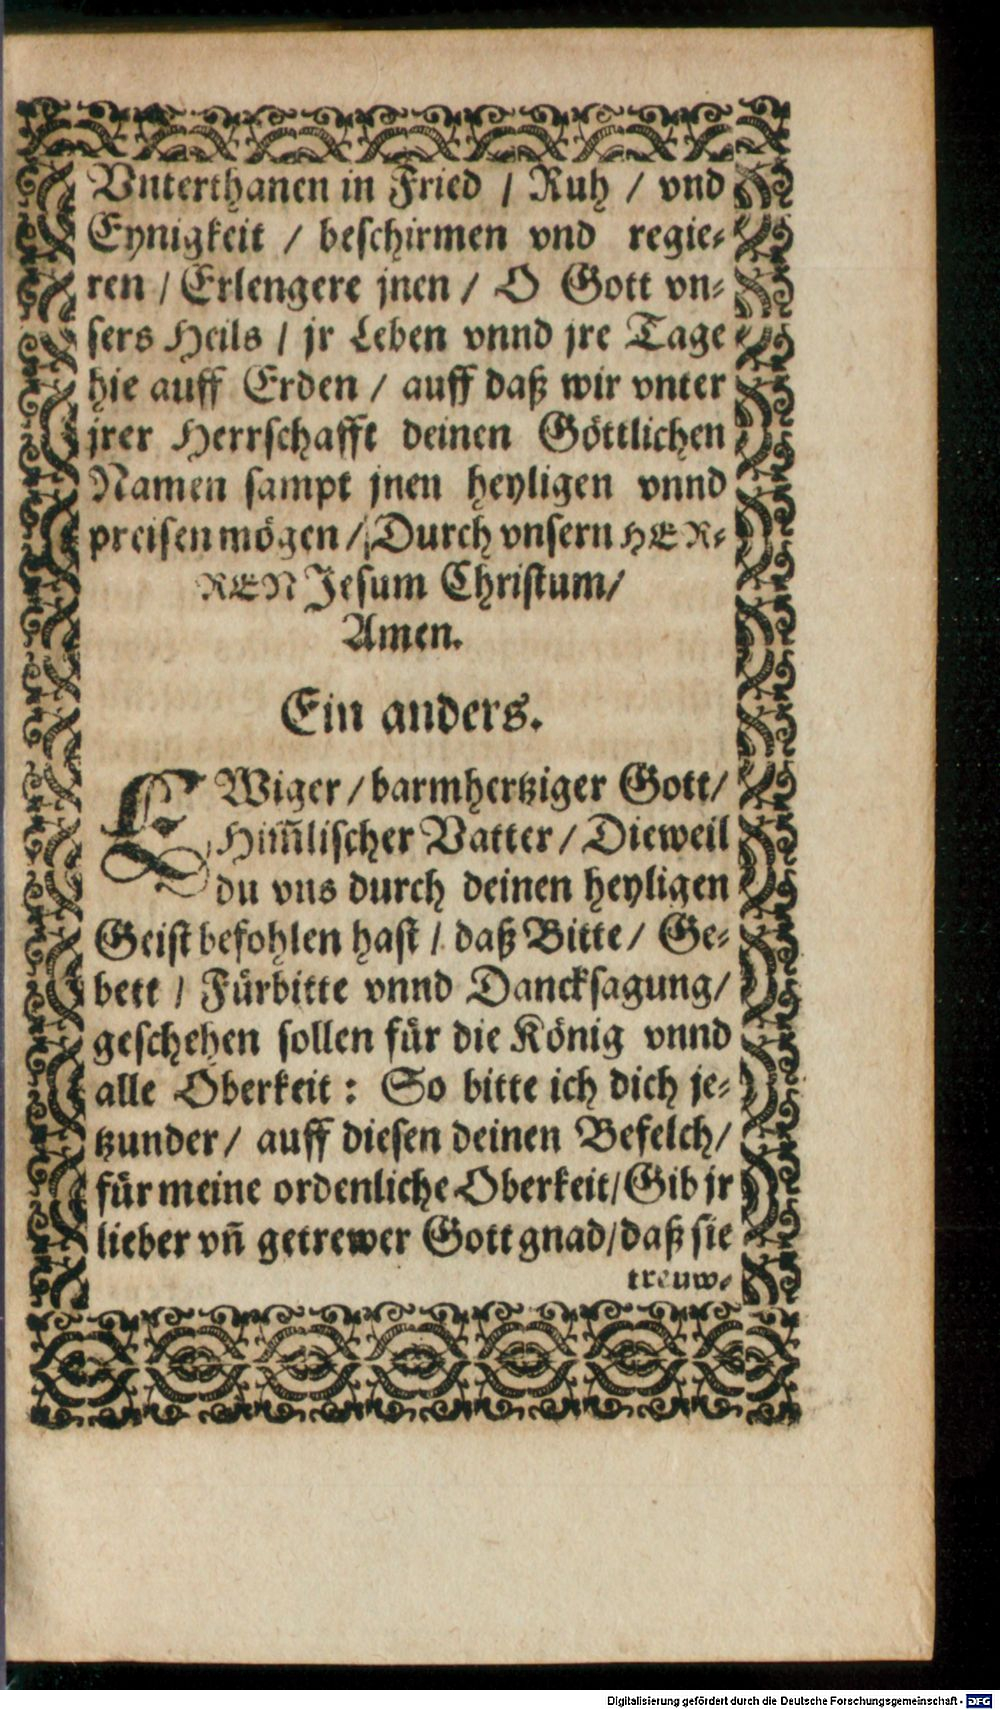 Vnterthanen in Fried / Ruh / vnd
Eynigkeit / beschirmen vnd regie-
ren / Erlengere jnen / O Gott vn-
sers Heils / jr Leben vnnd jre Tage
hie auff Erden / auff daß wir vnter
jrer Herrschafft deinen Göttlichen
Namen sampt jnen heyligen vnnd
preisen mögen / Durch vnsern HER-
REN Jesum Christum /
Amen.
Ein anders.
EWiger / barmhertziger Gott /
Him̃lischer Vatter / Dieweil
du vns durch deinen heyligen
Geist befohlen hast / daß Bitte / Ge-
bett / Fürbitte vnnd Dancksagung /
geschehen sollen für die König vnnd
alle Oberkeit : So bitte ich dich je-
tzunder / auff diesen deinen Befelch /
für meine ordenliche Oberkeit / Gib jr
lieber vn̄ getrewer Gott gnad / daß sie
treuw-
Digitalisierung gefördert durch die Deutsche Forschungsgemeinschaft - DFG